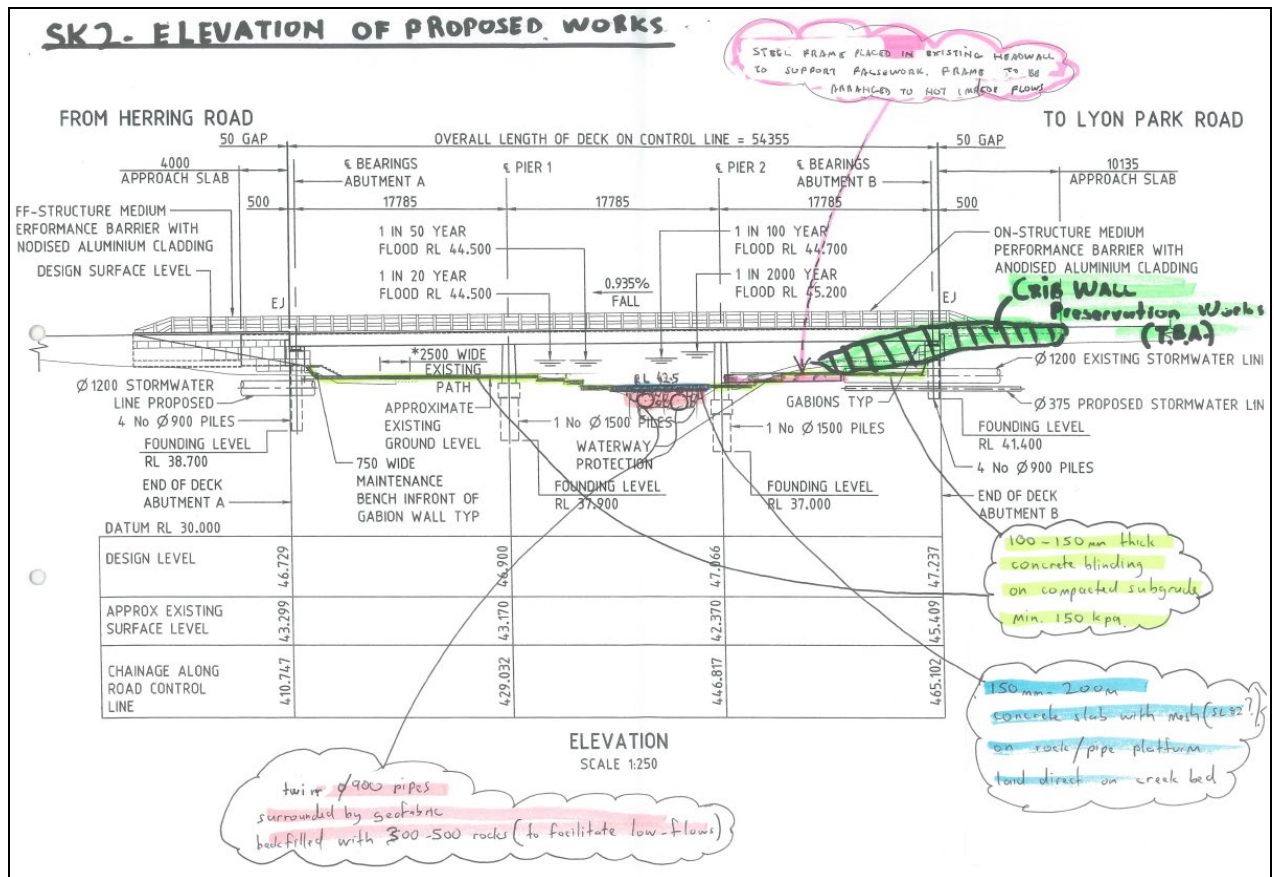 SK2- ELEVATION OF PROPOSED WORKS
STEEL FRAME PLACED IN EXISTING HEADWALL
TO SUPPORT FALSEWORK. FRAME TO BE
ARRANGED TO NOT IMPEDE FLOWS
FROM HERRING ROAD
TO LYON PARK ROAD
50 GAP
OVERALL LENGTH OF DECK ON CONTROL LINE = 54355
50 GAP
4000
APPROACH SLAB
℄ BEARINGS
ABUTMENT A
℄ PIER 1
℄ PIER 2
℄ BEARINGS
ABUTMENT B
10135
APPROACH SLAB
500
17785
17785
17785
500
FF-STRUCTURE MEDIUM
ERFORMANCE BARRIER WITH
NODISED ALUMINIUM CLADDING
DESIGN SURFACE LEVEL
1 IN 50 YEAR
FLOOD RL 44.500
1 IN 20 YEAR
FLOOD RL 44.500
0.935%
FALL
1 IN 100 YEAR
FLOOD RL 44.700
1 IN 2000 YEAR
FLOOD RL 45.200
ON-STRUCTURE MEDIUM
PERFORMANCE BARRIER WITH
ANODISED ALUMINIUM CLADDING
EJ
EJ
CRIB WALL
Preservation Works
(T.B.A.)
*2500 WIDE
EXISTING
PATH
RL 42.5
Ø1200 EXISTING STORMWATER LINI
Ø1200 STORMWATER
LINE PROPOSED
4 No Ø900 PILES
FOUNDING LEVEL
RL 38.700
APPROXIMATE
EXISTING
GROUND LEVEL
1 No Ø1500 PILES
WATERWAY
PROTECTION
GABIONS TYP
1 No Ø1500 PILES
Ø375 PROPOSED STORMWATER LIN
FOUNDING LEVEL
RL 41.400
4 No Ø900 PILES
END OF DECK
ABUTMENT A
750 WIDE
MAINTENANCE
BENCH INFRONT OF
GABION WALL TYP
FOUNDING LEVEL
RL 37.900
FOUNDING LEVEL
RL 37.000
END OF DECK
ABUTMENT B
DATUM RL 30.000
DESIGN LEVEL
46.729
46.900
47.066
47.237
APPROX EXISTING
SURFACE LEVEL
43.299
43.170
42.370
45.409
CHAINAGE ALONG
ROAD CONTROL
LINE
410.747
429.032
446.817
465.102
100-150mm thick
concrete blinding
on compacted subgrade
min. 150 kpa.
150mm-200m
concrete slab with mesh (SL82?)
on rock/pipe platform
laid direct on creek bed
ELEVATION
SCALE 1:250
twin Ø900 pipes
surrounded by geofabric
backfilled with 300-500 rocks (to facilitate low-flows)